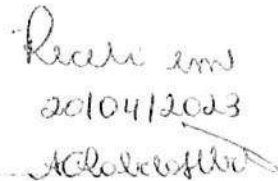 Recebi em
20/04/2023